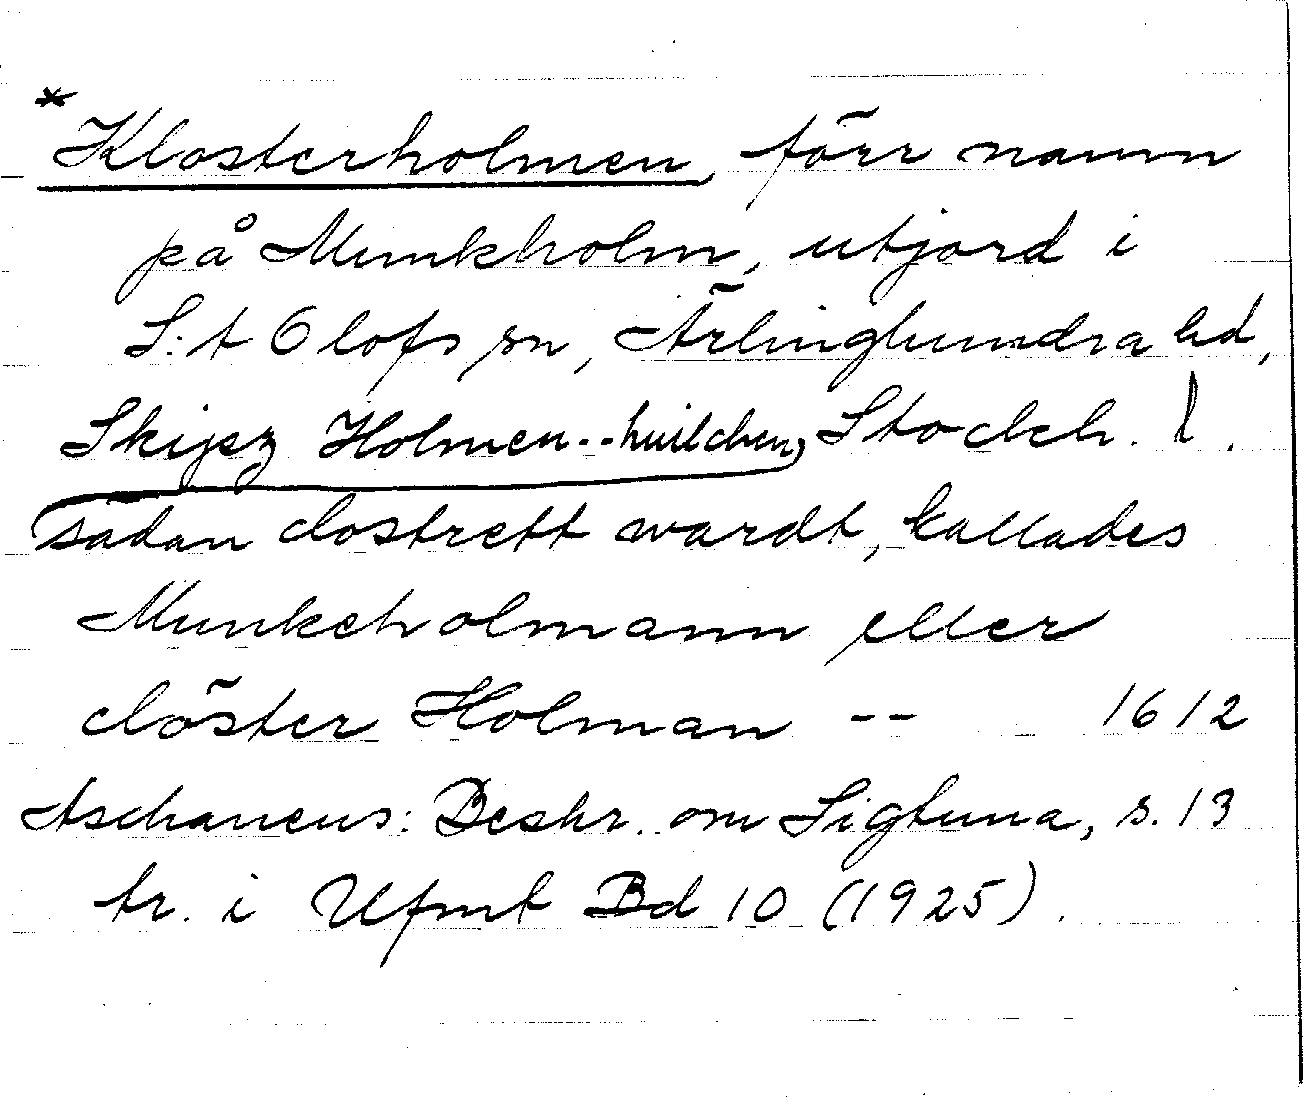 *Klosterholmen, förr namn
på Munkholm, utjord i
S:t Olofs sn, Ärlinghundra hd,
Stockh. l.
Skijsz Holmen -- huilchen,
sädan clostrett wardt, kallades
Munkeholmann eller
clöster Holman -- 1612
Aschaneus: Beskr. om Sigtuna, s. 13
tr. i Ufmt Bd 10 (1925).